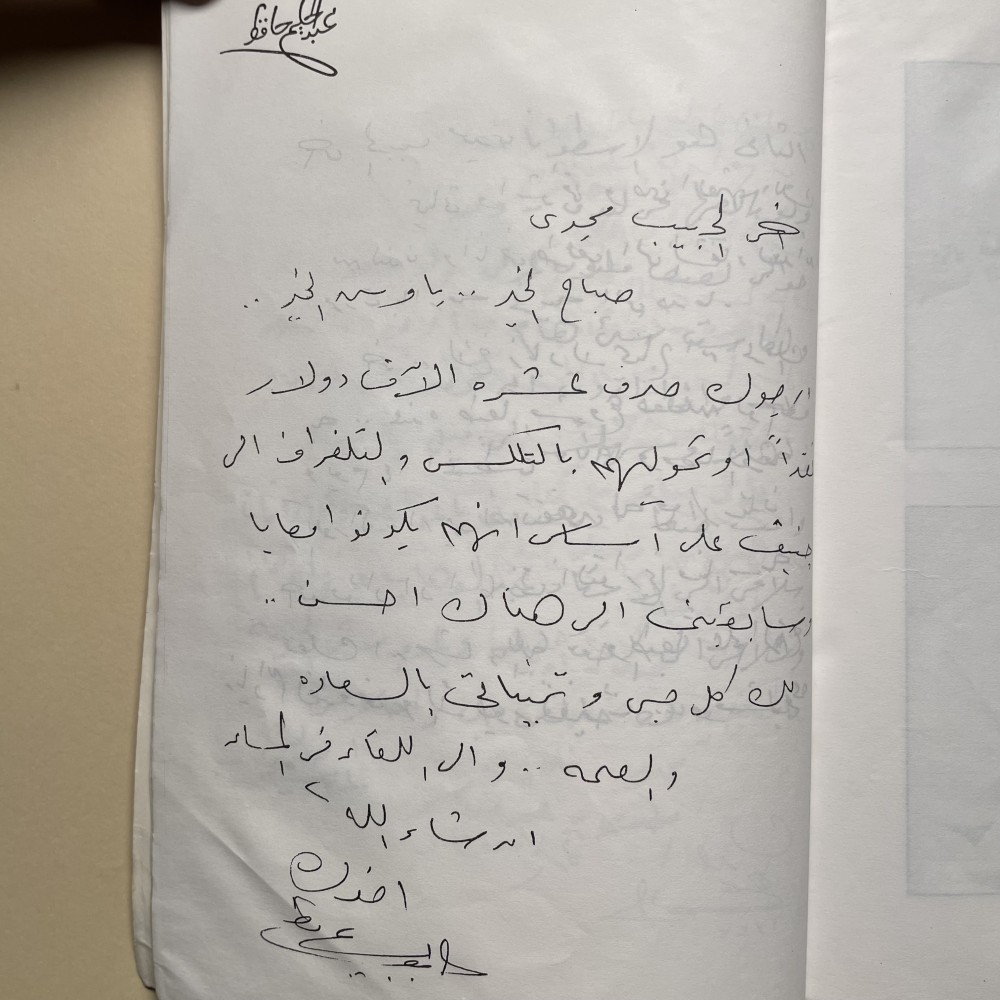 عبدالحليم حافظ
الحبيب مجدى
صباح الخير .. يا وش الخير ..
ارجوك صرف عشره الاف دولار
غداً او تحوليهم بالتلكس والتلغراف الى
جنيف على اساس انهم يكونوا معايا
وسابقينى الى هناك احسن ..
لك كل حبى وتمنياتى بالسعاده
والصحه .. والى اللقاء فى المساء
ان شاء الله
اخوك